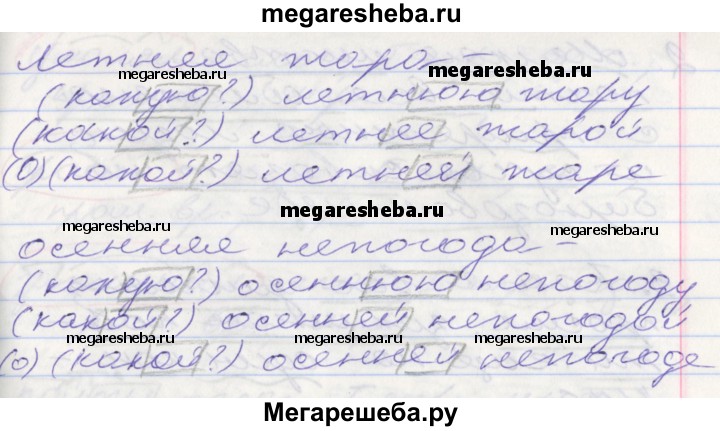 megaresheba.ru
летняя жара –
megaresheba.ru megaresheba.ru
(какую?) летнюю жару
(какой?) летней жарой
megaresheba.ru megaresheba.ru
(о) (какой?) летней жаре
megaresheba.ru megaresheba.ru
осенняя непогода –
(какую?) осеннюю непогоду
(какой?) осенней непогодой
megaresheba.ru megaresheba.ru
(о) (какой?) осенней непогоде
Мегарешеба.ру